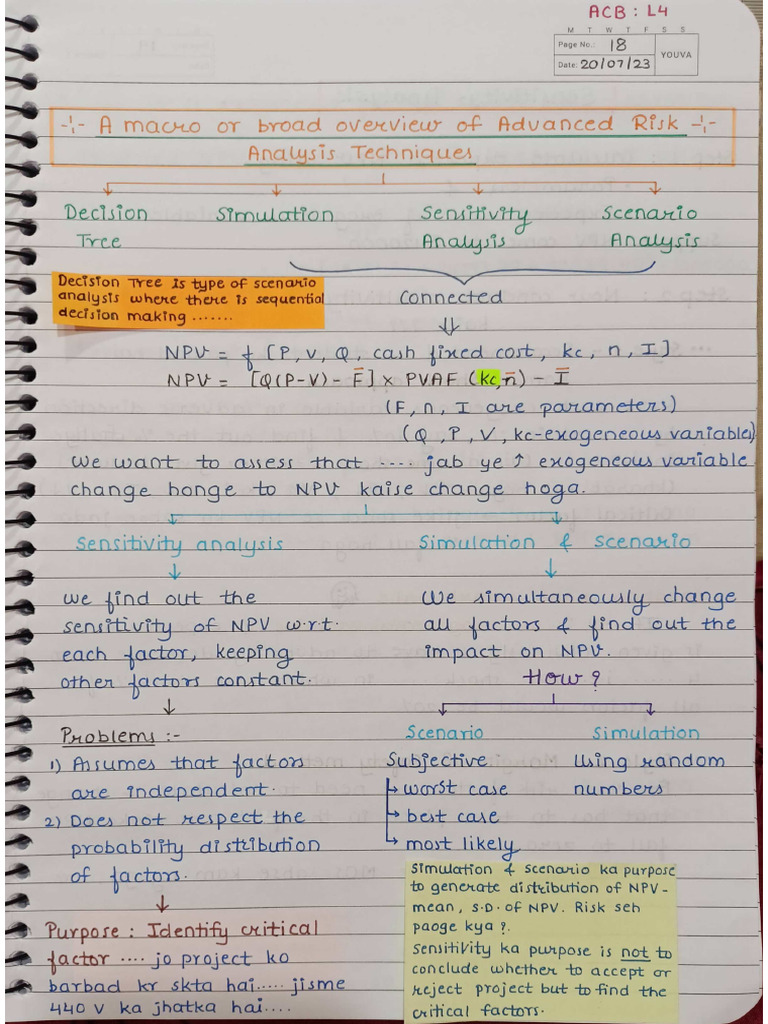 ACB : L4
M T W T F S S
Page No.: 18
YOUVA
Date: 20/07/23
A macro or broad overview of Advanced Risk
Analysis Techniques
Decision Tree
Simulation
Sensitivity Analysis
Scenario Analysis
Decision Tree is type of scenario
analysis where there is sequential
decision making .......
Connected
NPV = f [P, V, Q, cash fixed cost, kc, n, I]
NPV = [Q(P-V) - F̅] × PVAF (kc, n̅) - I̅
(F, n, I are parameters)
(Q, P, V, kc-exogeneous variables)
We want to assess that .... jab ye ↑ exogeneous variable
change honge to NPV kaise change hoga.
Sensitivity analysis
we find out the
sensitivity of NPV w.r.t.
each factor, keeping
other factors constant.
Problems :-
1) Assumes that factors
are independent.
2) Does not respect the
probability distribution
of factors.
Purpose : Identify critical
factor .... jo project ko
barbad kr skta hai.... jisme
440 V ka jhatka hai....
Simulation & Scenario
We simultaneously change
all factors & find out the
impact on NPV.
How ?
Scenario
Subjective
worst case
best case
most likely
Simulation
Using random
numbers
Simulation & scenario ka purpose
to generate distribution of NPV -
mean, S.D. of NPV. Risk seh
paoge kya ?.
Sensitivity ka purpose is not to
conclude whether to accept or
reject project but to find the
critical factors.